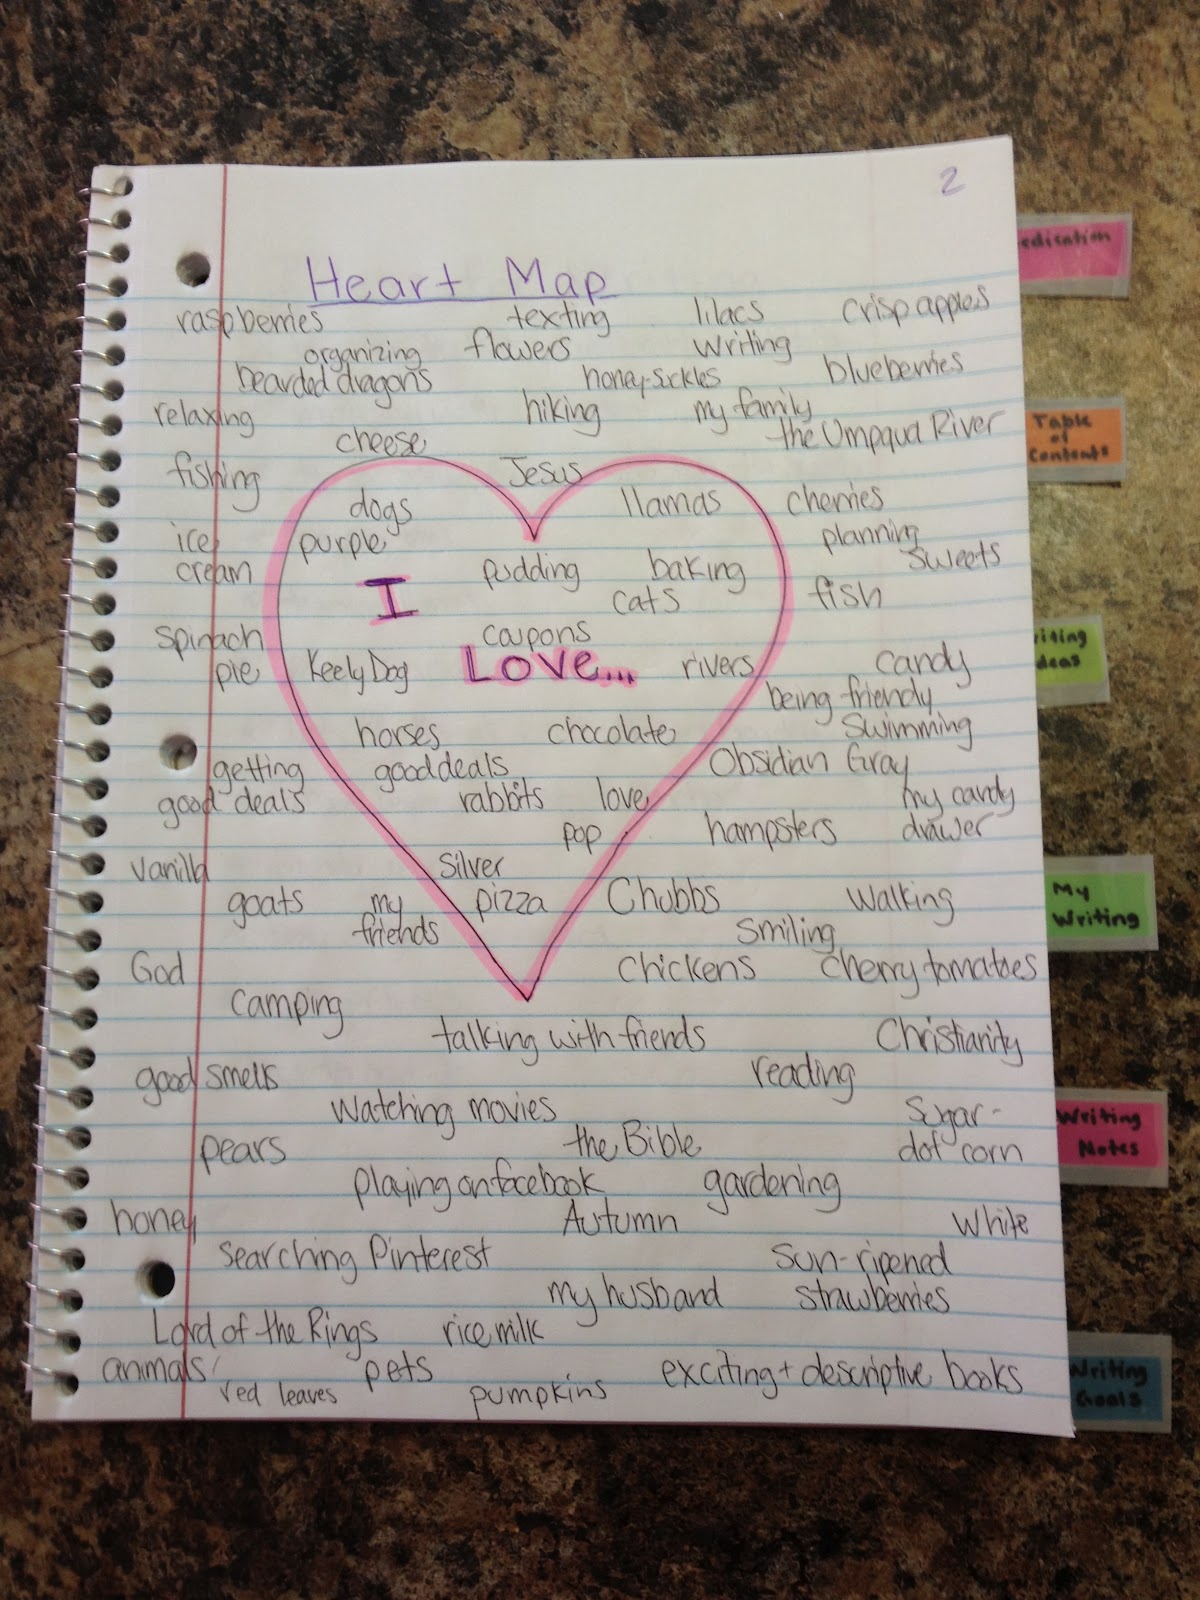 2
Heart Map
raspberries texting lilacs crisp apples
organizing flowers writing
bearded dragons honey-suckles blueberries
relaxing hiking my family
cheese the Umpqua River
fishing Jesus
dogs llamas cherries
ice purple planning
cream pudding baking sweets
I cats fish
spinach coupons
pie Keely Dog Love... rivers candy
being friendly
horses chocolate swimming
getting good deals Obsidian Gray
good deals rabbits love my candy
pop hampsters drawer
vanilla Silver
goats my pizza Chubbs walking
friends smiling
God chickens cherry tomatoes
camping
talking with friends Christianity
good smells reading
watching movies sugar-
pears the Bible dot corn
playing on facebook gardening
honey Autumn white
searching Pinterest sun-ripened
my husband strawberries
Lord of the Rings rice milk
animals pets exciting + descriptive books
red leaves pumpkins
edication
Table
of
Contents
riting
deas
My
Writing
Writing
Notes
Writing
Goals